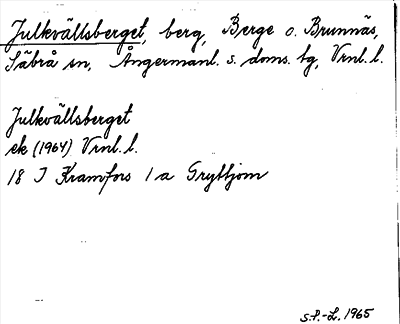 Julkvällsberget, berg, Berge o. Brunnäs,
Säbrå sn, Ångermanl. s. doms. tg, Vrnl. l.
Julkvällsberget
ek (1964) Vrnl. l.
18 J Kramfors 1 a Gryttjom
S.P.-L. 1965